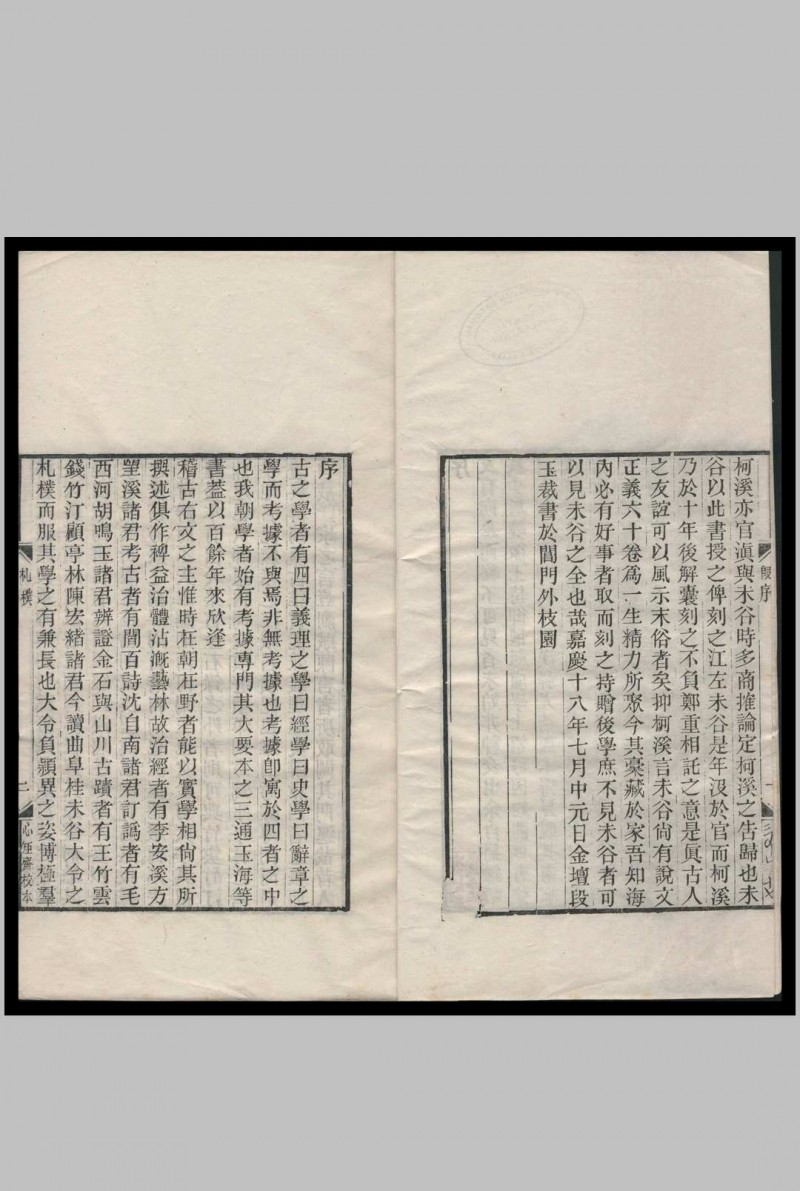 柯溪亦官滇與未谷時多商搉論定柯溪之告歸也未
谷以此書授之俾刻之江左未谷是年沒於官而柯溪
乃於十年後解囊刻之不負鄭重相託之意是眞古人
之友誼可以風示末俗者矣抑柯溪言未谷尙有說文
正義六十卷爲一生精力所聚今其稾藏於家吾知海
內必有好事者取而刻之持贈後學庶不見未谷者可
以見未谷之全也哉嘉慶十八年七月中元日金壇段
玉裁書於閶門外枝園
段序
一
序
古之學者有四曰義理之學曰經學曰史學曰辭章之
學而考據不與焉非無考據也考據卽寓於四者之中
也我朝學者始有考據專門其大要本之三通玉海等
書葢以百餘年來欣逢
稽古右文之主惟時在朝在野者能以實學相尙其所
撰述俱作裨益治體沾漑藝林故治經者有李安溪方
望溪諸君考古者有閻百詩沈自南諸君訂譌者有毛
西河胡鳴玉諸君辨證金石與山川古蹟者有王竹雲
錢竹汀顧亭林陳宏緒諸君今讀曲阜桂未谷大令之
札樸而服其學之有兼長也大令負穎異之姿博極羣
札樸
二
心矩齋校本